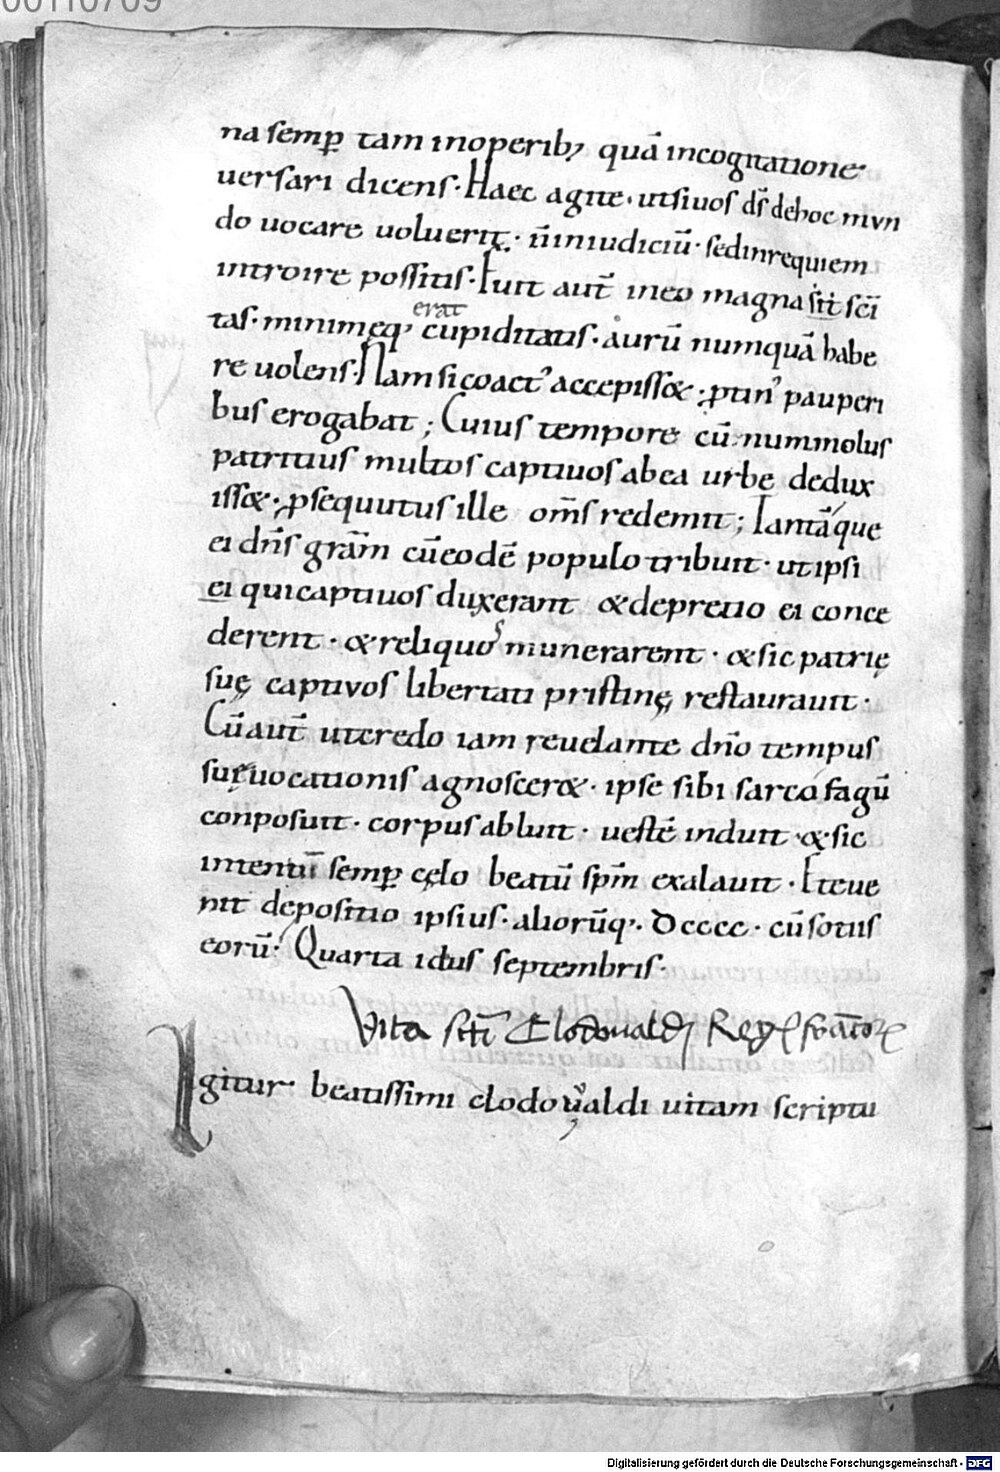 00110709
na semp̲ tam inoperib; quā incogitatione
uersari dicens· Haec agite· utsiuos d̄s dehoc mvn
do uocare uoluerit· n̄iniudiciū· sedinrequiem
introire possitis· Fuit aut̄ ineo magna sc̄i
erat
tas· minimęq; cupiditatis· aurū numquā habe
re uolens· Nam sicoact' accepisset; ptin' pauperi
bus erogabat; Cuius tempore cū nummolus
patritius multos captiuos abea urbe dedux
isset; psequutus ille om̄s redemit; Tantāque
ei dn̄s grām cūeodē populo tribuit· utipsi
ei quicaptiuos duxerant &depretio ei conce
derent· &reliquos munerarent· &sic patrię
suę captivos libertati pristinę restaurauit·
Cūaut̄ uteredo iam reuelante dn̄o tempus
suęuocationis agnosceret· ipse sibi sarcofagū
conposuit· corpus abluit· uestē induit· &sic
intentū semp̲ cęlo beatū sp̄m exalauit· Eteue
nit depositio ipsius· aliorūq;· Dcccc· cūsotiis
eorū· Quarta idus septembris·
Vita scti Clodoualdi Regis francor
Igitur· beatissimi clodoualdi uitam scriptu
Digitalisierung gefördert durch die Deutsche Forschungsgemeinschaft - DFG